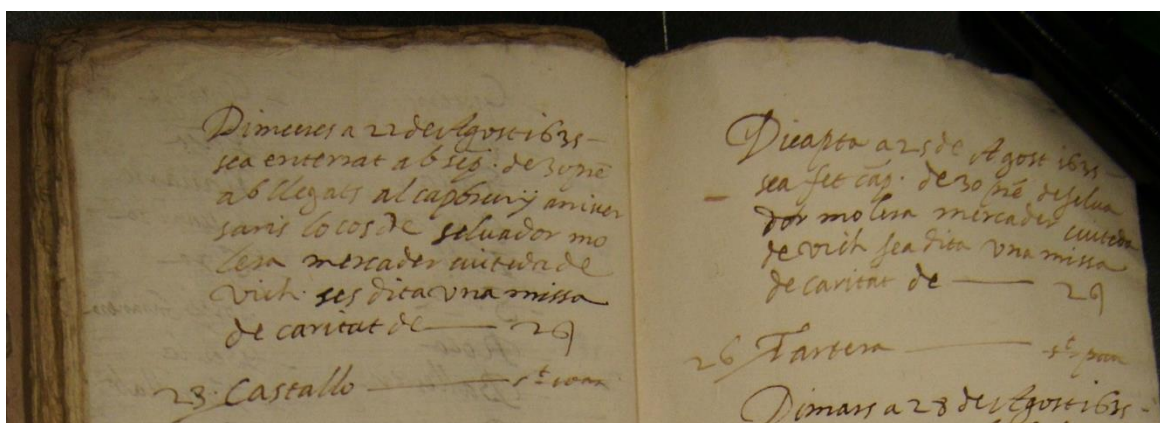 Dimecres a 22 de Agost 1635 –
sea enterrat ab seg. de 30 pre
ab llegats al cap breu y aniver
saris lo cos de seluador mo
lera mercader ciuteda de
vich. ses dita vna missa
de caritat de —— 2 s
23. Castallo ——
Dicapta a 25 de Agost 1635 –
sea fet cap. de 30 pre de selua
dor molera mercader ciuteda
de vich sea dita vna missa
de caritat de —— 2 s
26 Tartera ——
Dimars a 28 de Agost 1635 –